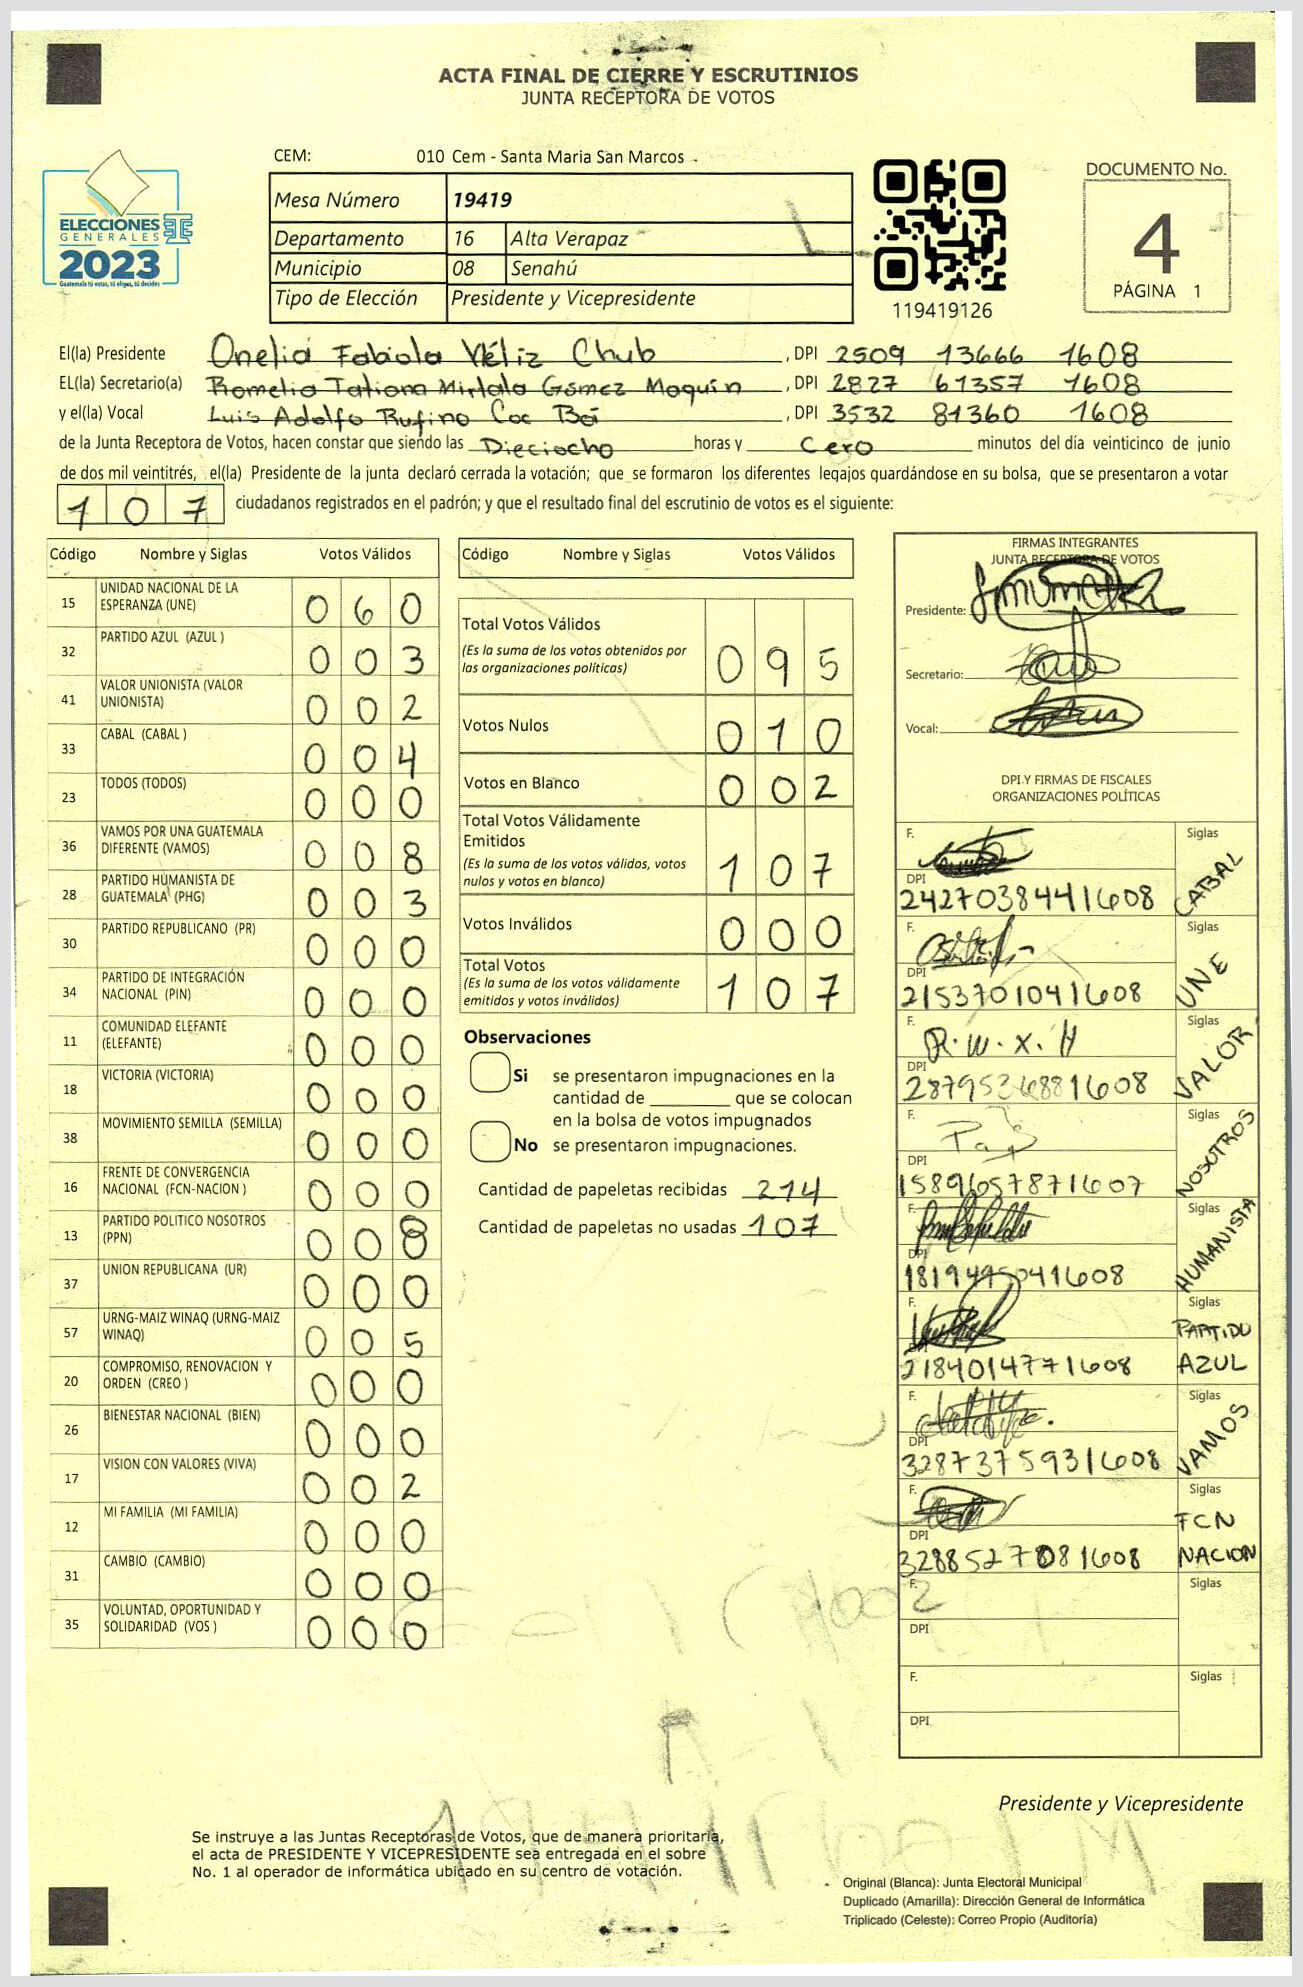 ACTA FINAL DE CIERRE Y ESCRUTINIOS
JUNTA RECEPTORA DE VOTOS
ELECCIONES
GENERALES
2023
Guatemala tú votas, tú eliges, tú decides
CEM: 010 Cem - Santa Maria San Marcos
Mesa Número 19419
Departamento 16 Alta Verapaz
Municipio 08 Senahú
Tipo de Elección Presidente y Vicepresidente
119419126
DOCUMENTO No.
4
PÁGINA 1
El(la) Presidente Onelia Fabiola Véliz Chub , DPI 2509 13666 1608
EL(la) Secretario(a) Romelia Tatiana Mirtala Gómez Maquín , DPI 2827 61357 1608
y el(la) Vocal Luis Adolfo Rufino Coc Bá , DPI 3532 81360 1608
de la Junta Receptora de Votos, hacen constar que siendo las Dieciocho horas y Cero minutos del día veinticinco de junio
de dos mil veintitrés, el(la) Presidente de la junta declaró cerrada la votación; que se formaron los diferentes legajos guardándose en su bolsa, que se presentaron a votar
107 ciudadanos registrados en el padrón; y que el resultado final del escrutinio de votos es el siguiente:
Código Nombre y Siglas Votos Válidos
15 UNIDAD NACIONAL DE LA ESPERANZA (UNE) 060
32 PARTIDO AZUL (AZUL ) 003
41 VALOR UNIONISTA (VALOR UNIONISTA) 002
33 CABAL (CABAL ) 004
23 TODOS (TODOS) 000
36 VAMOS POR UNA GUATEMALA DIFERENTE (VAMOS) 008
28 PARTIDO HUMANISTA DE GUATEMALA (PHG) 003
30 PARTIDO REPUBLICANO (PR) 000
34 PARTIDO DE INTEGRACIÓN NACIONAL (PIN) 000
11 COMUNIDAD ELEFANTE (ELEFANTE) 000
18 VICTORIA (VICTORIA) 000
38 MOVIMIENTO SEMILLA (SEMILLA) 000
16 FRENTE DE CONVERGENCIA NACIONAL (FCN-NACION ) 000
13 PARTIDO POLITICO NOSOTROS (PPN) 008
37 UNION REPUBLICANA (UR) 000
57 URNG-MAIZ WINAQ (URNG-MAIZ WINAQ) 005
20 COMPROMISO, RENOVACION Y ORDEN (CREO ) 000
26 BIENESTAR NACIONAL (BIEN) 000
17 VISION CON VALORES (VIVA) 002
12 MI FAMILIA (MI FAMILIA) 000
31 CAMBIO (CAMBIO) 000
35 VOLUNTAD, OPORTUNIDAD Y SOLIDARIDAD (VOS ) 000
Código Nombre y Siglas Votos Válidos
Total Votos Válidos 095
(Es la suma de los votos obtenidos por
las organizaciones políticas)
Votos Nulos 010
Votos en Blanco 002
Total Votos Válidamente
Emitidos 107
(Es la suma de los votos válidos, votos
nulos y votos en blanco)
Votos Inválidos 000
Total Votos 107
(Es la suma de los votos válidamente
emitidos y votos inválidos)
Observaciones
Si se presentaron impugnaciones en la
cantidad de ________ que se colocan
en la bolsa de votos impugnados
No se presentaron impugnaciones.
Cantidad de papeletas recibidas 214
Cantidad de papeletas no usadas 107
FIRMAS INTEGRANTES
JUNTA RECEPTORA DE VOTOS
Presidente:
Secretario:
Vocal:
DPI Y FIRMAS DE FISCALES
ORGANIZACIONES POLÍTICAS
F. Siglas CABAL
DPI 2427038441608
F. Siglas UNE
DPI 2153701041608
F. R.W.X.H Siglas VALOR
DPI 2879536881608
F. Siglas NOSOTROS
DPI 1589657871607
F. Siglas HUMANISTA
DPI 1819449504​1608
F. Siglas PARTIDO AZUL
DPI 2184014771608
F. Siglas VAMOS
DPI 3287375931608
F. Siglas FCN NACION
DPI 3288527081608
F. Siglas
DPI
F. Siglas
DPI
Presidente y Vicepresidente
Se instruye a las Juntas Receptoras de Votos, que de manera prioritaria,
el acta de PRESIDENTE Y VICEPRESIDENTE sea entregada en el sobre
No. 1 al operador de informática ubicado en su centro de votación.
Original (Blanca): Junta Electoral Municipal
Duplicado (Amarilla): Dirección General de Informática
Triplicado (Celeste): Correo Propio (Auditoría)